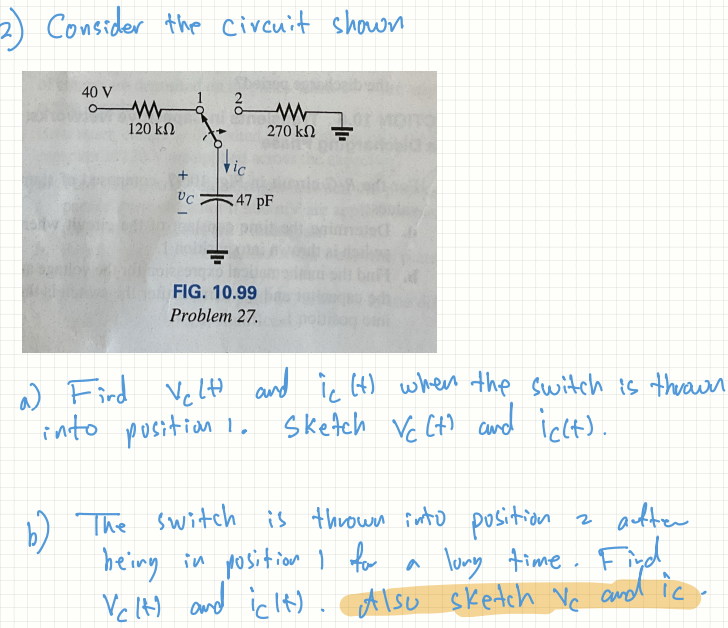 2) Consider the circuit shown
40 V
1
2
120 kΩ
270 kΩ
iC
+
υC
47 pF
−
FIG. 10.99
Problem 27.
a) Find Vc(t) and ic(t) when the switch is thrown
into position 1. Sketch Vc(t) and ic(t).
b) The switch is thrown into position 2 after
being in position 1 for a long time. Find
Vc(t) and ic(t). Also sketch Vc and ic.